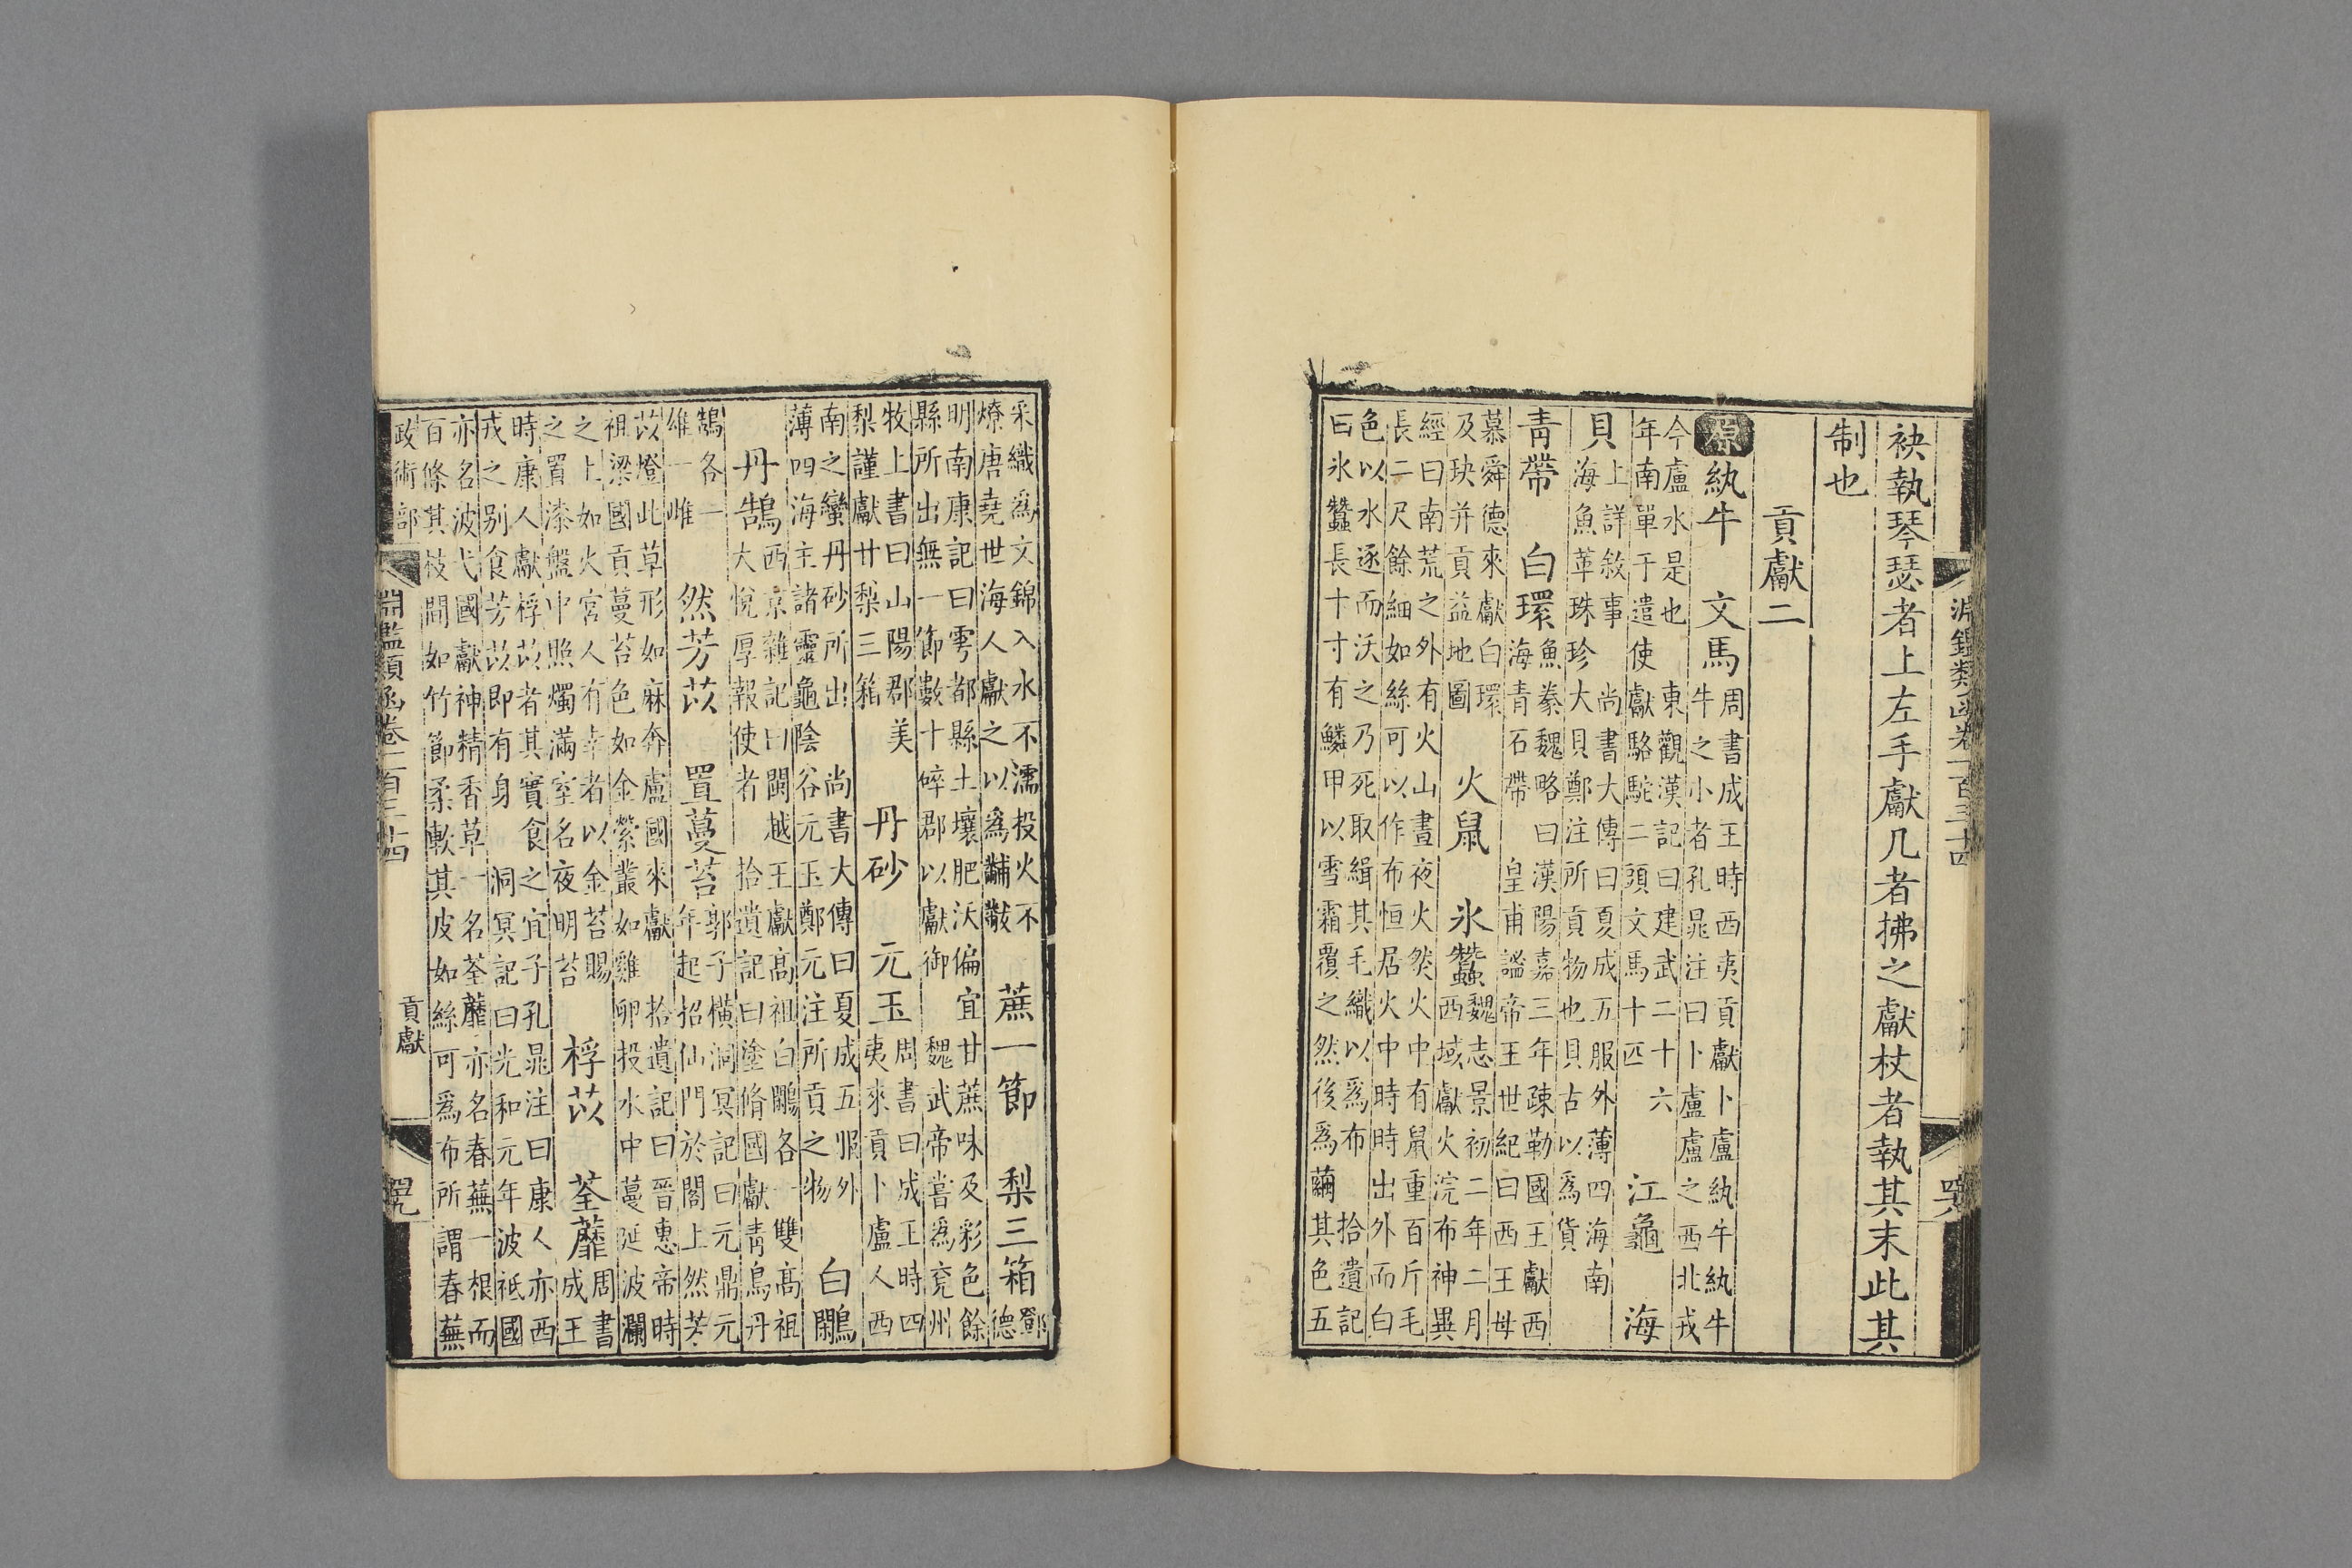 袂執琴瑟者上左手獻几者拂之獻杖者執其末此其
制也
貢獻二
原紈牛 文馬
周書成王時西夷貢獻卜盧紈牛紈牛
牛之小者孔晁注曰卜盧盧之西北戎
今盧水是也 東觀漢記曰建武二十六
年南單于遣使獻駱駝二頭文馬十匹
江龜 海
貝
上詳敘事 尚書大傳曰夏成五服外薄四海南
海魚革珠珍大貝鄭注所貢物也貝古以爲貨
青帶 白環
魚豢魏略曰漢陽嘉三年疎勒國王獻西
海青石帶 皇甫謐帝王世紀曰西王母
慕舜德來獻白環
及玦并貢益地圖
火鼠 氷蠶
魏志景初二年二月
西域獻火浣布神異
經曰南荒之外有火山晝夜火然火中有鼠重百斤毛
長二尺餘細如絲可以作布恒居火中時時出外而白
色以水逐而沃之乃死取緝其毛織以爲布 拾遺記
曰氷蠶長十寸有鱗甲以雪霜覆之然後爲繭其色五
采織爲文錦入水不濡投火不
燎唐堯世海人獻之以爲黼黻
蔗一節 梨三箱
鄧
德
明南康記曰雩都縣土壤肥沃偏宜甘蔗味及彩色餘
縣所出無一節數十碎郡以獻御 魏武帝嘗爲兖州
牧上書曰山陽郡美
梨謹獻廿梨三箱
丹砂 元玉
周書曰成王時四
夷來貢卜盧人西
南之蠻丹砂所出 尚書大傳曰夏成五服外
薄四海主諸靈龜陰谷元玉鄭元注所貢之物
白鷴
丹鵠
西京雜記曰閩越王獻高祖白鷴各一雙高祖
大悅厚報使者 拾遺記曰塗脩國獻青鳥丹
鵠各一
雄一雌
然芳苡 置蔓苔
郭子橫洞冥記曰元鼎元
年起招仙門於閣上然芳
苡燈此草形如麻奔盧國來獻 拾遺記曰晉惠帝時
祖梁國貢蔓苔色如金縈叢如雞卵投水中蔓延波瀾
之上如火宮人有幸者以金苔賜
之置漆盤中照燭滿室名夜明苔
桴苡 荃蘼
周書
成王
時康人獻桴苡者其實食之宜子孔晁注曰康人亦西
戎之別食芳苡即有身 洞冥記曰光和元年波祗國
亦名波弋國獻神精香草一名荃蘼亦名春蕪一根而
百條其枝間如竹節柔軟其皮如絲可爲布所謂春蕪
政術部
淵鑑類函卷二百三十四
貢獻